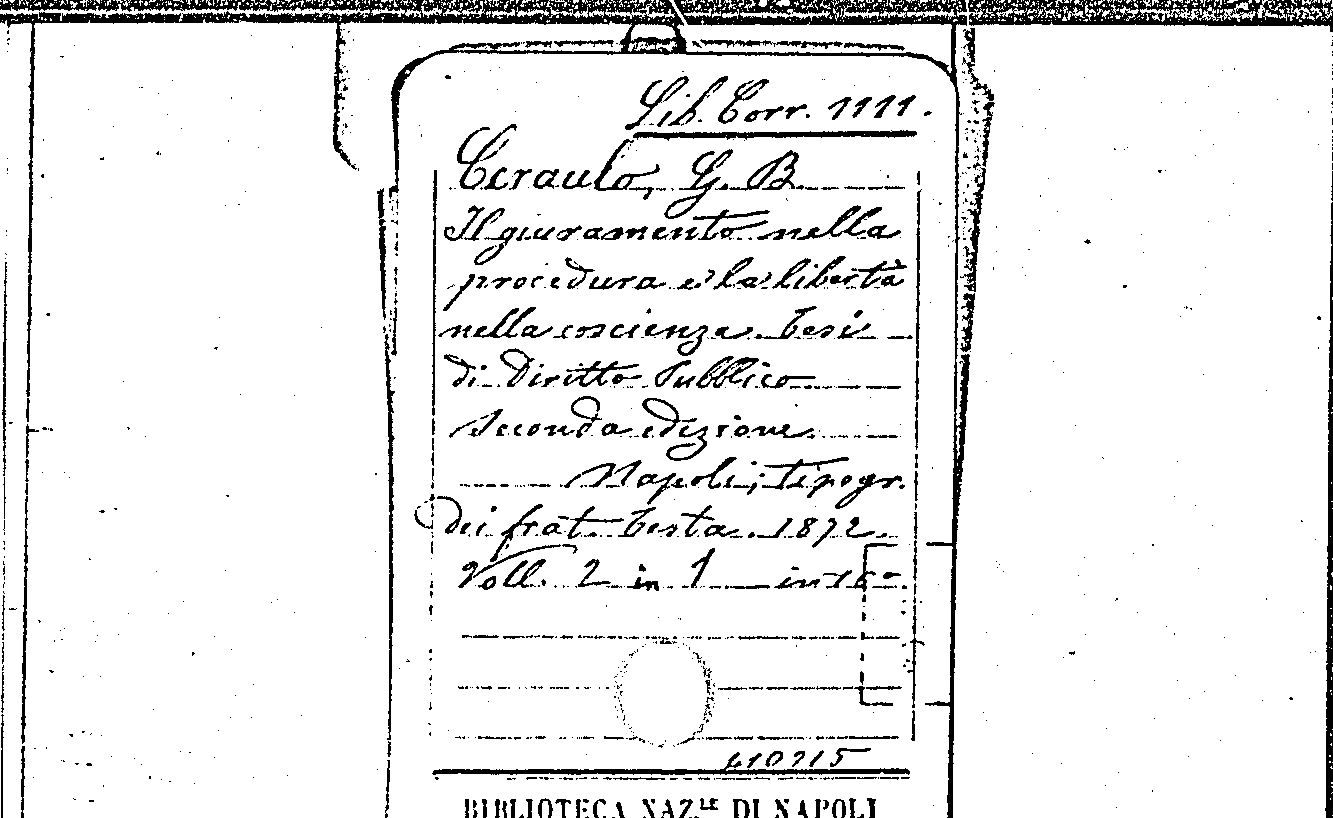 Lib. Corr. 1111.
Ceraulo, G. B.
Il giuramento nella
procedura e la libertà
nella coscienza. Tesi
di Diritto Pubblico
Seconda edizione.
Napoli; tipogr.
dei frat. Testa. 1872.
Voll. 2 in 1 in 16º
410715
BIBLIOTECA NAZ.LE DI NAPOLI